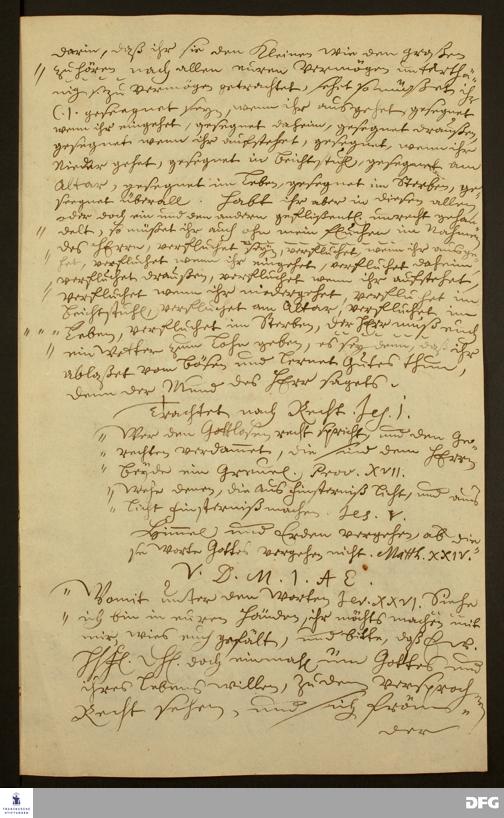 darin, daß ihr sie den Kleinen wie den großen
zu hören nach allen euren Vermögen
getrachtet, sehet so müsset ihr
(:). geseegnet seyn, wenn ihr ausgehet, gesegnet
wenn ihr eingehet, gesegnet daheim, gesegnet draußen,
gesegnet wenn ihr aufstehet, gesegnet, wenn ihr
Nieder gehet, gesegnet in beichtstuhl, gesegnet am
Altar, gesegnet im Leben, gesegnet im Sterben, ge-
seegnet überall. Habt ihr aber in diesen allen
oder doch ein und den andern unrecht gehan-
delt, so müsset ihr auch ohn mein fluchen im Nahmen
des Herrn, verfluchet seyn, verfluchet, wenn ihr ausge-
het, verfluchet wenn ihr eingehet, verfluchet daheim,
verfluchet draußen, verfluchet wenn ihr aufstehet,
verfluchet wenn ihr niedergehet, verfluchet im
beichtstuhl, verfluchet am Altar, verfluchet im
Leben, verfluchet im Sterben, der Herr muß euch
ein Wetter zum Lohn geben, es sey denn, daß ihr
ablaßet vom bösen und lernet Gutes thun,
denn der Mund des Herr sagets.
Trachtet nach Recht. Jes. 1.
Wer den Gottlosen recht spricht, und den Ge-
rechten verdammet, die sind dem Herrn
beyde ein Greuel. Prov. XVII.
Wehe denen, die aus finsterniß licht, und aus
licht finsterniß machen. Jes. V.
Himmel und Erden vergehen, ab. die-
se Worte Gottes vergehen nicht. Matth. XXIV.
V. D. M. I. A E.
Womit unter den Worten Jer. XXVI. Siehe
ich bin in euren Händen, ihr möchts machen mit
mir, wies euch gefält, und bitte, daß
doch einmahl üm Gottes und
ihres Lebens willen, zu dem
Recht sehen, und sich
der
TERRITORIA
STIFTUNGEN
DFG